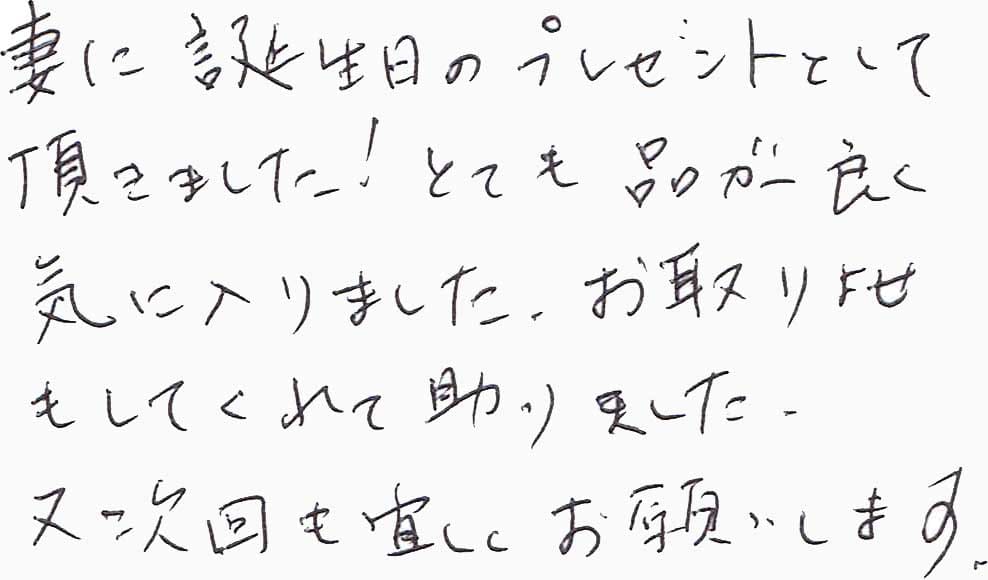 妻に誕生日のプレゼントとして
頂きました!とても品が良く
気に入りました.お取りよせ
もしてくれて助りました.
又次回も宜しくお願いします.